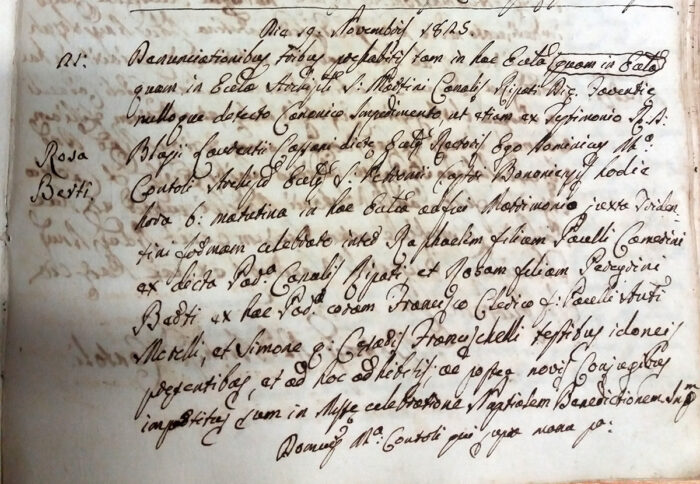 Die 19. Novembris 1825.
21: Denunciationibus tribus praehabitis tam in hac Eccla quam in Eccla
quam in Eccla Archiplli S: Martini Canalis Ripati Dic. Faventie
nulloque detecto Canonico Impedimento ut etiam ex Testimonio
Rosa Berti.
Blasij Laurentii Cassani dicte Eccle Rectoris Ego Dominicus Mª.
Contoli Archipr Eccle S: Petronii Castri Bononiensis hodie
hora 6: matutina in hac Eccla adfui Matrimonio juxta Triden-
tini formam celebrato inter Raphaelem filium Pauli Camerini
ex dicta Par.ª Canalis Ripati, et Rosam filiam Peregrini
Berti ex hac Par.ª coram Francisco Clerico f: Pauli
Morelli, et Simone q: Cesaris Franceschelli testibus idoneis
presentibus, et ad hoc adhibitis; ac postea novis Conjugibus
impertitus sum in Misse celebratione Nuptialem Benedictionem
Domcus Mª: Contoli qui supra manu pª: